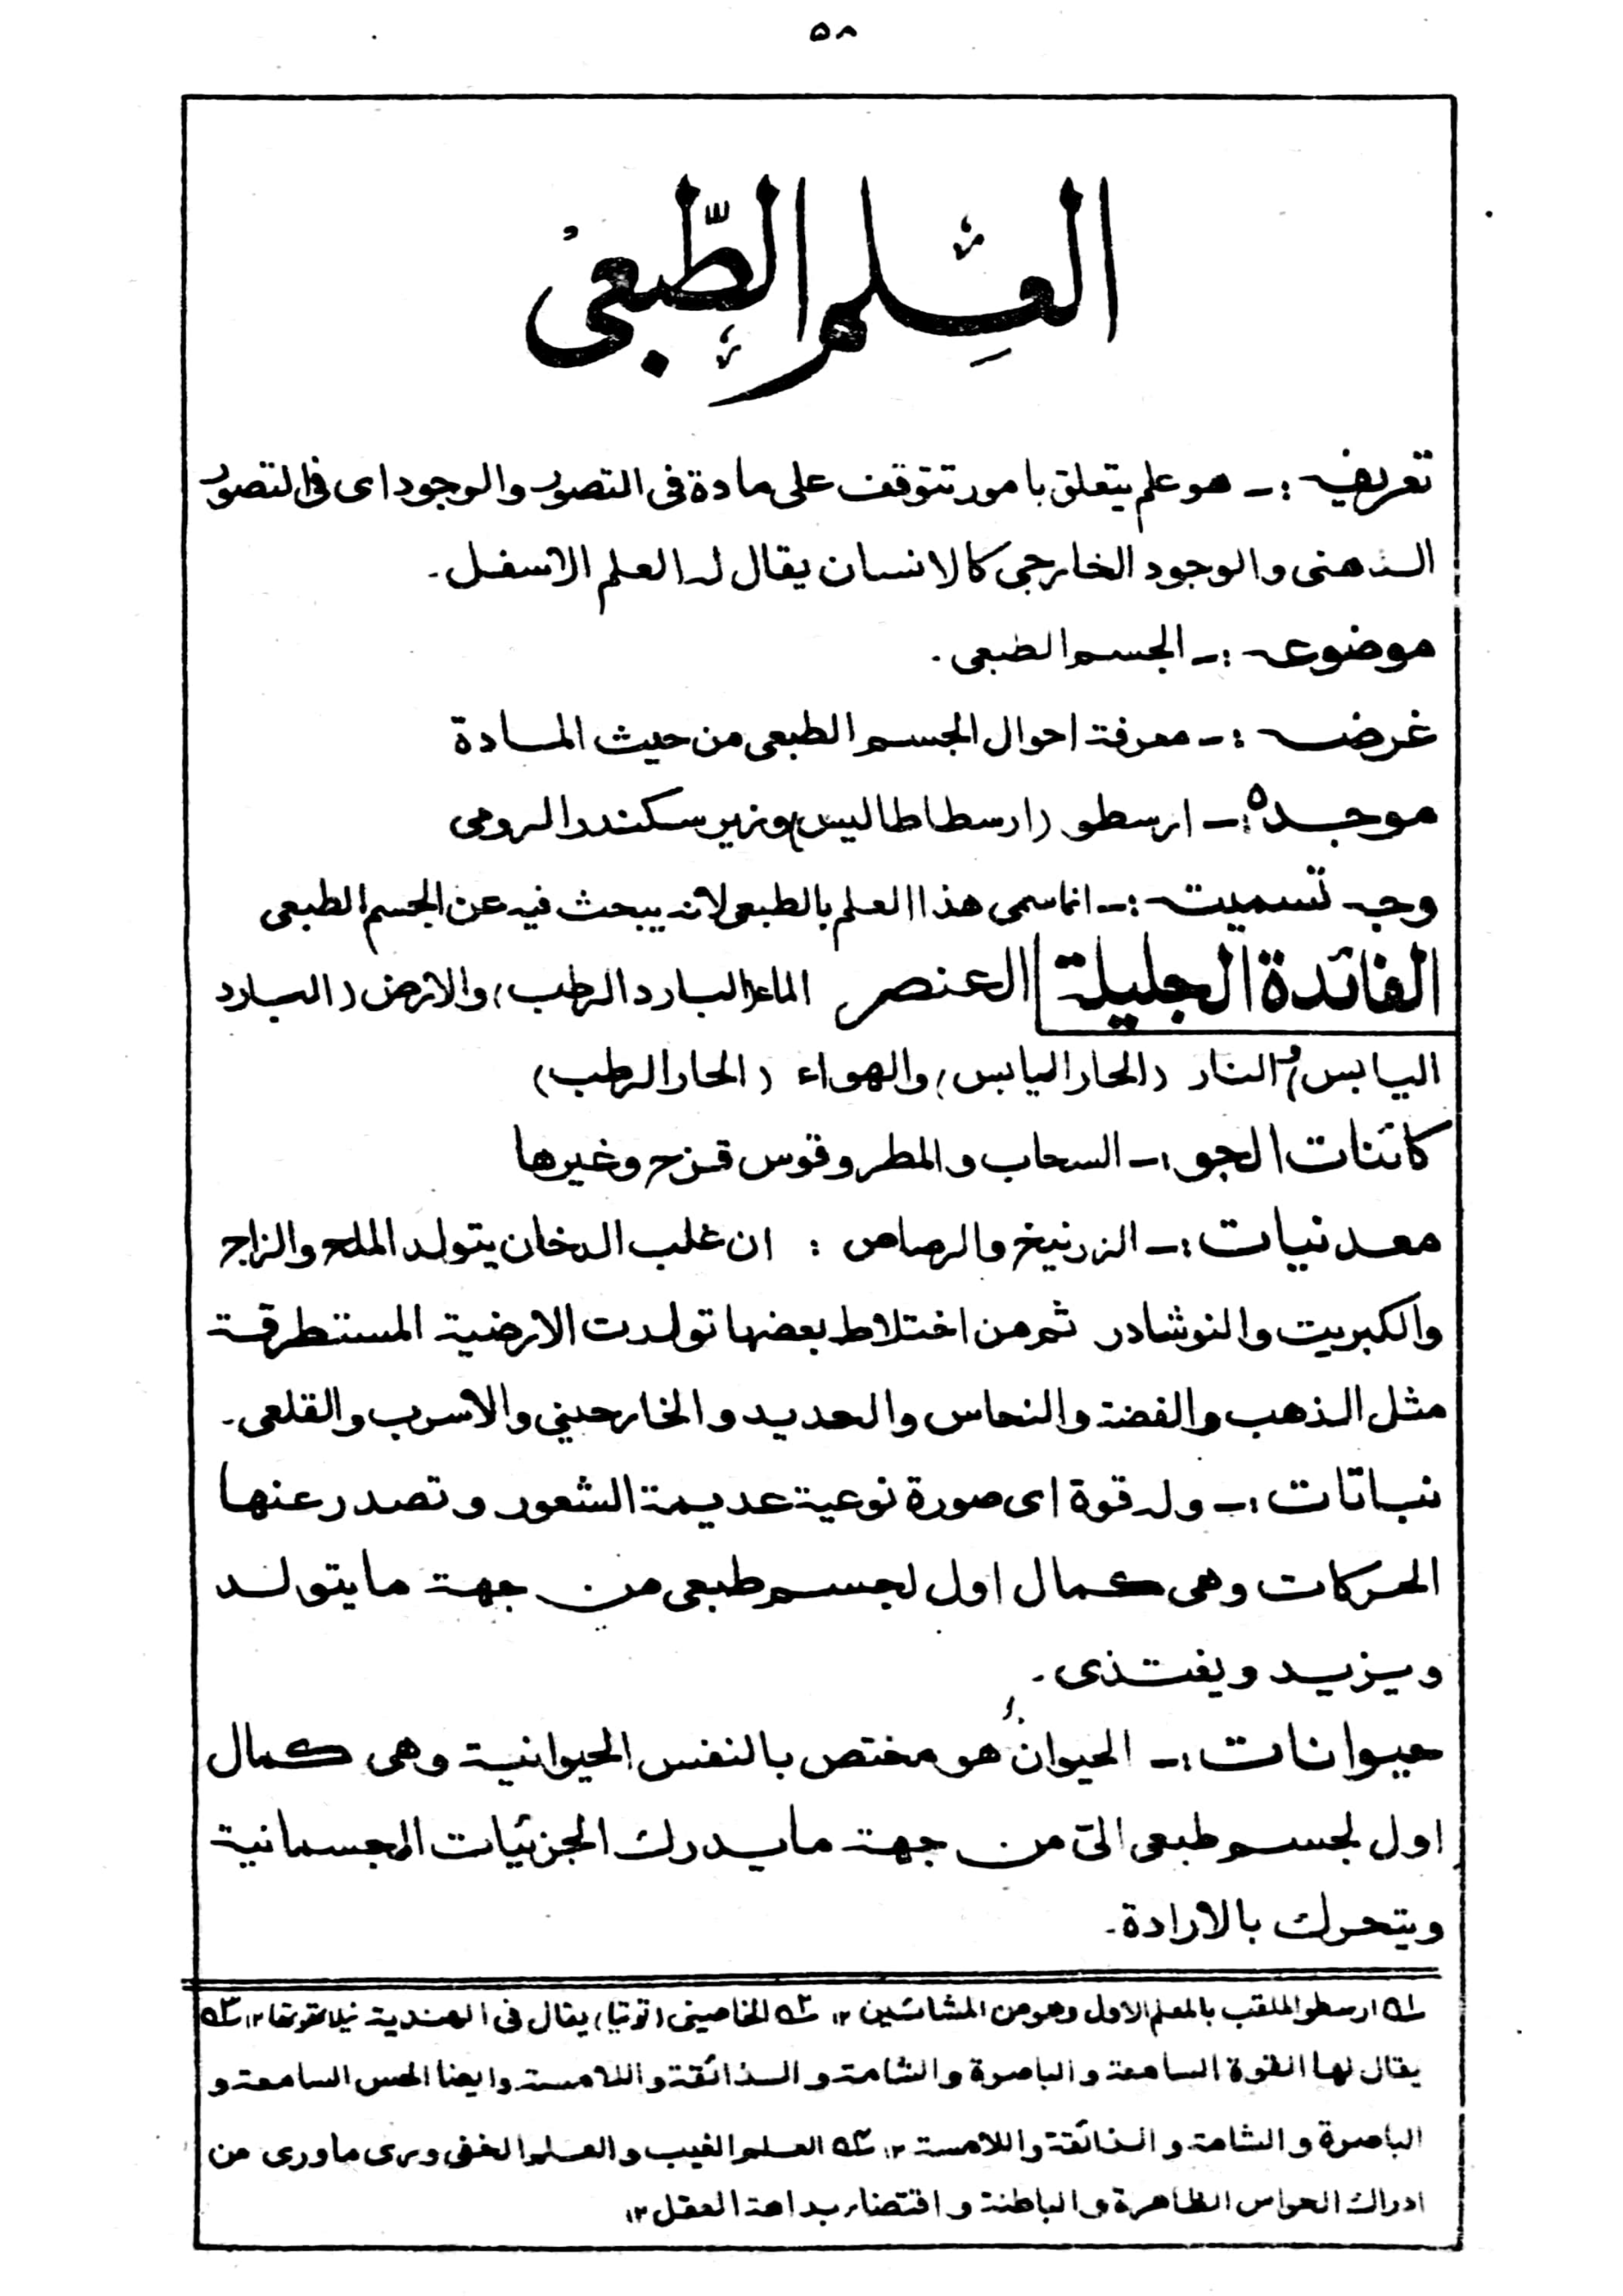 ٥٨
العلم الطبعی
تعریفہ :۔ هو علم یتعلق بامور تتوقف علی مادة فی التصور والوجود ای فی التصور
الذهنی والوجود الخارجی کالانسان یقال له العلم الاسفل۔
موضوعہ :۔ الجسم الطبعی۔
غرضہ :۔ معرفة احوال الجسم الطبعی من حیث المادة
موجدہ :۔ ارسطو (ارسطاطالیس) وزیر سکندر الرومی
وجہ تسمیت :۔ انما سمی هذا العلم بالطبعی لانه یبحث فیه عن الجسم الطبعی
الفائدة الجلیلة العنصر الماء (البارد الرطب) والارض (البارد
الیابس) والنار (الحار الیابس) والهواء (الحار الرطب)
کائنات الجو :۔ السحاب والمطر وقوس قزح وغیرها
معدنیات :۔ الزرنیخ والرصاص : ان غلب الدخان یتولد الملح والزاج
والکبریت والنوشادر ثم من اختلاط بعضها تولدت الارضیة المستطرقة
مثل الذهب والفضة والنحاس والحدید والخارحینی والاسرب والقلعی۔
نباتات :۔ وله قوة ای صورة نوعیة عدیمة الشعور وتصدر عنها
الحرکات وهی کمال اول لجسم طبعی من جهة ما یتولد
ویزید ویغتذی۔
حیوانات :۔ الحیوان هو مختص بالنفس الحیوانیة وهی کمال
اول لجسم طبعی الی من جهة ما یدرك الجزئیات الجسمانیة
ویتحرك بالارادة۔
لہ ارسطو الملقب بالمعلم الاول وهو من المشائین ۱۲ ٢ہ الخاصینی (توتیا) یقال فی الهندیة نیلا تھوتھا ۱۲ ٣ہ
یقال لها القوة السامعة والباصرة والشامة والذائقة واللامسة وایضا الحس السامعة و
الباصرة والشامة والذائقة واللامسة ۱۲ ٤ہ العلم الغیب والعلم الخفی ویری ما وری من
ادراك الحواس الظاهرة والباطنة واقتضاء بداهة العقل ۱۲